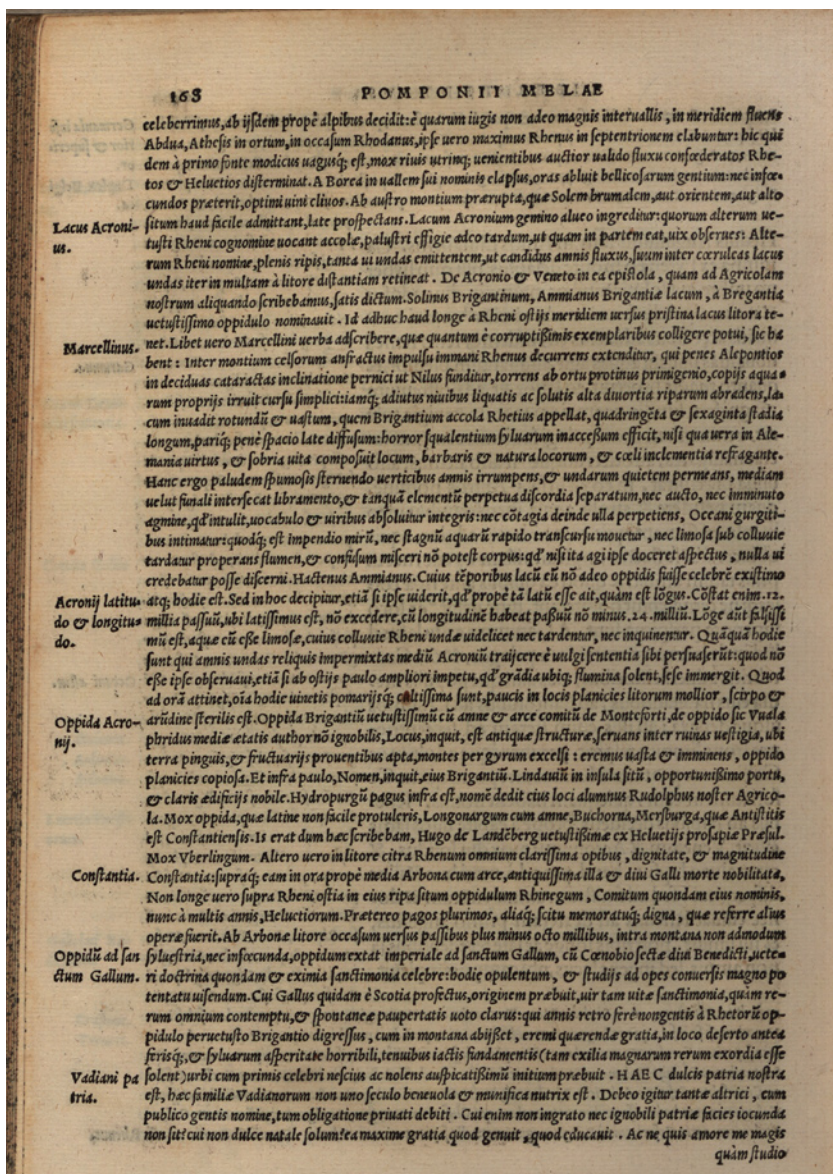 168 POMPONII MELAE
celeberrimus, ab ijsdem propè alpibus decidit: è quarum iugis non adeo magnis interuallis, in meridiem fluens
Abdua, Athesis in ortum, in occasum Rhodanus, ipse uero maximus Rhenus in septentrionem elabuntur: hic qui
dem à primo fonte modicus uagusq; est, mox riuis utrinq; uenientibus auctior ualido fluxu confœderatos Rhe-
tos & Heluetios disterminat. A Borea in uallem sui nominis elapsus, oras abluit bellicosarum gentium: nec infœ-
cundos præterit, optimi uini cliuos. Ab austro montium prærupta, quæ Solem brumalem, aut orientem, aut alto
Lacus Acroni-
us.
situm haud facile admittant, late prospectans. Lacum Acronium gemino alueo ingreditur: quorum alterum ue-
tusti Rheni cognomine uocant accolæ, palustri effigie adeo tardum, ut quam in partem eat, uix obserues: Alte-
rum Rheni nomine, plenis ripis, tanta ui undas emittentem, ut candidus amnis fluxus, suum inter cœruleas lacus
undas iter in multam à litore distantiam retineat. De Acronio & Veneto in ea epistola, quam ad Agricolam
nostrum aliquando scribebamus, satis dictum. Solinus Brigantinum, Ammianus Brigantiæ lacum, à Bregantia
uetustissimo oppidulo nominauit. Id adhuc haud longe à Rheni ostijs meridiem uersus pristina lacus litora te-
Marcellinus.
net. Libet uero Marcellini uerba adscribere, quæ quantum è corruptißimis exemplaribus colligere potui, sic ha
bent: Inter montium celsorum anfractus impulsu immani Rhenus decurrens extenditur, qui penes Alepontios
in deciduas cataractas inclinatione pernici ut Nilus funditur, torrens ab ortu protinus primigenio, copijs aqua-
rum proprijs irruit cursu simplici: iamq; adiutus niuibus liquatis ac solutis alta diuortia riparum abradens, la-
cum inuadit rotundũ & uastum, quem Brigantium accola Rhetius appellat, quadringẽta & sexaginta stadia
longum, pariq; penè spacio late diffusum: horror squalentium syluarum inaccessum efficit, nisi qua uera in Ale-
mania uirtus, & sobria uita composuit locum, barbaris & natura locorum, & cœli inclementia refragante.
Hanc ergo paludem spumosis sternendo uerticibus amnis irrumpens, & undarum quietem permeans, mediam
uelut funali intersecat libramento, & tanquã elementũ perpetua discordia separatum, nec aucto, nec imminuto
agmine, qđ intulit, uocabulo & uiribus absoluitur integris: nec cõtagia deinde ulla perpetiens, Oceani gurgiti-
bus intimatur: quodq; est impendio mirũ, nec stagnũ aquarũ rapido transcursu mouetur, nec limosa sub colluuie
tardatur properans flumen, & confusum misceri nõ potest corpus: qđ nisi ita agi ipse doceret aspectus, nulla ui
credebatur posse discerni. Hactenus Ammianus. Cuius tẽporibus lacũ eũ nõ adeo oppidis fuisse celebrẽ existimo
Acronij latitu-
do & longitu-
do.
atq; hodie est. Sed in hoc decipitur, etiã si ipse uiderit, qđ propè tã latũ esse ait, quàm est lõgus. Cõstat enim .12.
millia passuũ, ubi latissimus est, nõ excedere, cũ longitudinẽ habeat paßuũ nõ minus .24. milliũ. Lõge aũt falsissi
mũ est, aquæ cũ eße limosæ, cuius colluuie Rheni undæ uidelicet nec tardentur, nec inquinentur. Quãquã hodie
sunt qui amnis undas reliquis impermixtas mediũ Acroniũ traijcere è uulgi sententia sibi persuaserũt: quod nõ
eße ipse obseruaui, etiã si ab ostijs paulo ampliori impetu, qđ grãdia ubiq; flumina solent, sese immergit. Quod
ad orã attinet, oĩa hodie uinetis pomarijsq; cultissima sunt, paucis in locis planicies litorum mollior, scirpo &
Oppida Acro-
nij.
arũdine sterilis est. Oppida Brigantiũ uetustissimũ cũ amne & arce comitũ de Monteforti, de oppido sic Vuala
phridus mediæ ætatis author nõ ignobilis, Locus, inquit, est antiquæ structuræ, seruans inter ruinas uestigia, ubi
terra pinguis, & fructuarijs prouentibus apta, montes per gyrum excelsi: eremus uasta & imminens, oppido
planicies copiosa. Et infra paulo, Nomen, inquit, eius Brigantiũ. Lindauiũ in insula sitũ, opportunißimo portu,
& claris ædificijs nobile. Hydropurgũ pagus infra est, nomẽ dedit eius loci alumnus Rudolphus noster Agrico-
la. Mox oppida, quæ latine non facile protuleris, Longonargum cum amne, Buchorna, Mersburga, quæ Antistitis
est Constantiensis. Is erat dum hæc scribebam, Hugo de Landẽberg uetustißimæ ex Heluetijs prosapiæ Præsul.
Mox Vberlingum. Altero uero in litore citra Rhenum omnium clarissima opibus, dignitate, & magnitudine
Constantia.
Constantia: supraq; eam in ora propè media Arbona cum arce, antiquissima illa & diui Galli morte nobilitata.
Non longe uero supra Rheni ostia in eius ripa situm oppidulum Rhinegum, Comitum quondam eius nominis,
nunc à multis annis, Heluetiorum. Prætereo pagos plurimos, aliaq; scitu memoratuq; digna, quæ referre alius
operæ fuerit. Ab Arbonæ litore occasum uersus passibus plus minus octo millibus, intra montana non admodum
Oppidũ ad san
ctum Gallum.
syluestria, nec infœcunda, oppidum extat imperiale ad sanctum Gallum, cũ Cœnobio sectæ diui Benedicti, uete-
ri doctrina quondam & eximia sanctimonia celebre: hodie opulentum, & studijs ad opes conuersis magno po
tentatu uisendum. Cui Gallus quidam è Scotia profectus, originem præbuit, uir tam uitæ sanctimonia, quàm re-
rum omnium contemptu, & spontaneæ paupertatis uoto clarus: qui annis retro ferè nongentis à Rhetorũ op-
pidulo peruetusto Brigantio digressus, cum in montana abijßet, eremi quærendæ gratia, in loco deserto antea
ferisq;, & syluarum asperitate horribili, tenuibus iactis fundamentis (tam exilia magnarum rerum exordia esse
Vadiani pa
tria.
solent) urbi cum primis celebri nescius ac nolens auspicatißimũ initium præbuit. HAEC dulcis patria nostra
est, hæc familiæ Vadianorum non uno seculo beneuola & munifica nutrix est. Debeo igitur tantæ altrici, cum
publico gentis nomine, tum obligatione priuati debiti. Cui enim non ingrato nec ignobili patriæ facies iocunda
non sit? cui non dulce natale solum? ea maxime gratia quod genuit, quod educauit. Ac ne quis amore me magis
quàm studio